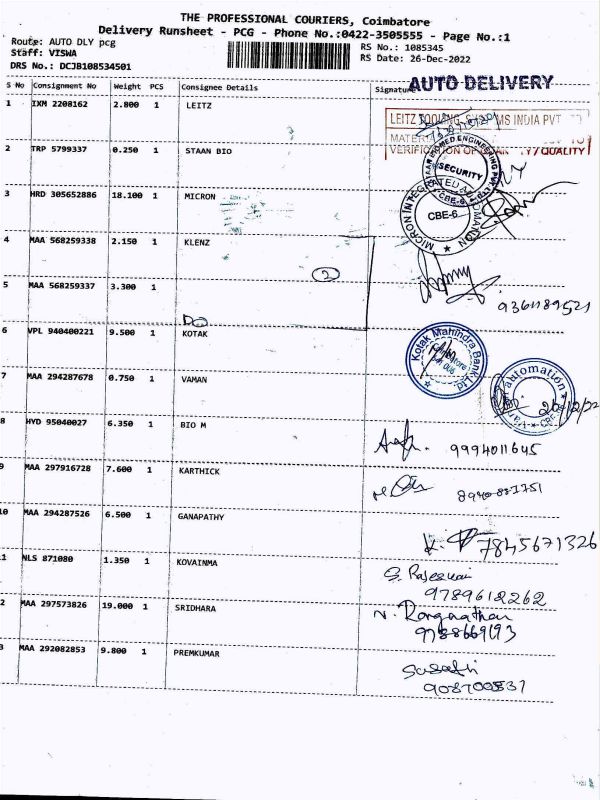 THE PROFESSIONAL COURIERS, Coimbatore
Delivery Runsheet - PCG - Phone No.:0422-3505555 - Page No.:1
Route: AUTO DLY pcg RS No.: 1085345
Staff: VISWA RS Date: 26-Dec-2022
DRS No.: DCJB108534501
AUTO DELIVERY
S No Consignment No Weight PCS Consignee Details Signature
1 IXM 2208162 2.800 1 LEITZ
LEITZ TOOLING SYSTEMS INDIA PVT
VERIFICATION QUALITY
2 TRP 5799337 0.250 1 STAAN BIO
SECURITY
CBE-6
3 HRD 305652886 18.100 1 MICRON
CBE-6
4 MAA 568259338 2.150 1 KLENZ
2
5 MAA 568259337 3.300 1
9361189521
DO
6 VPL 940400221 9.500 1 KOTAK
Kotak Mahindra Bank
7 MAA 294287678 0.750 1 VAMAN
automation
26/12/22
8 HYD 95040027 6.350 1 BIO M
9994011645
9 MAA 297916728 7.600 1 KARTHICK
10 MAA 294287526 6.500 1 GANAPATHY
7845671326
1 NLS 871080 1.350 1 KOVAINMA
9789612262
2 MAA 297573826 19.000 1 SRIDHARA
3 MAA 292082853 9.800 1 PREMKUMAR